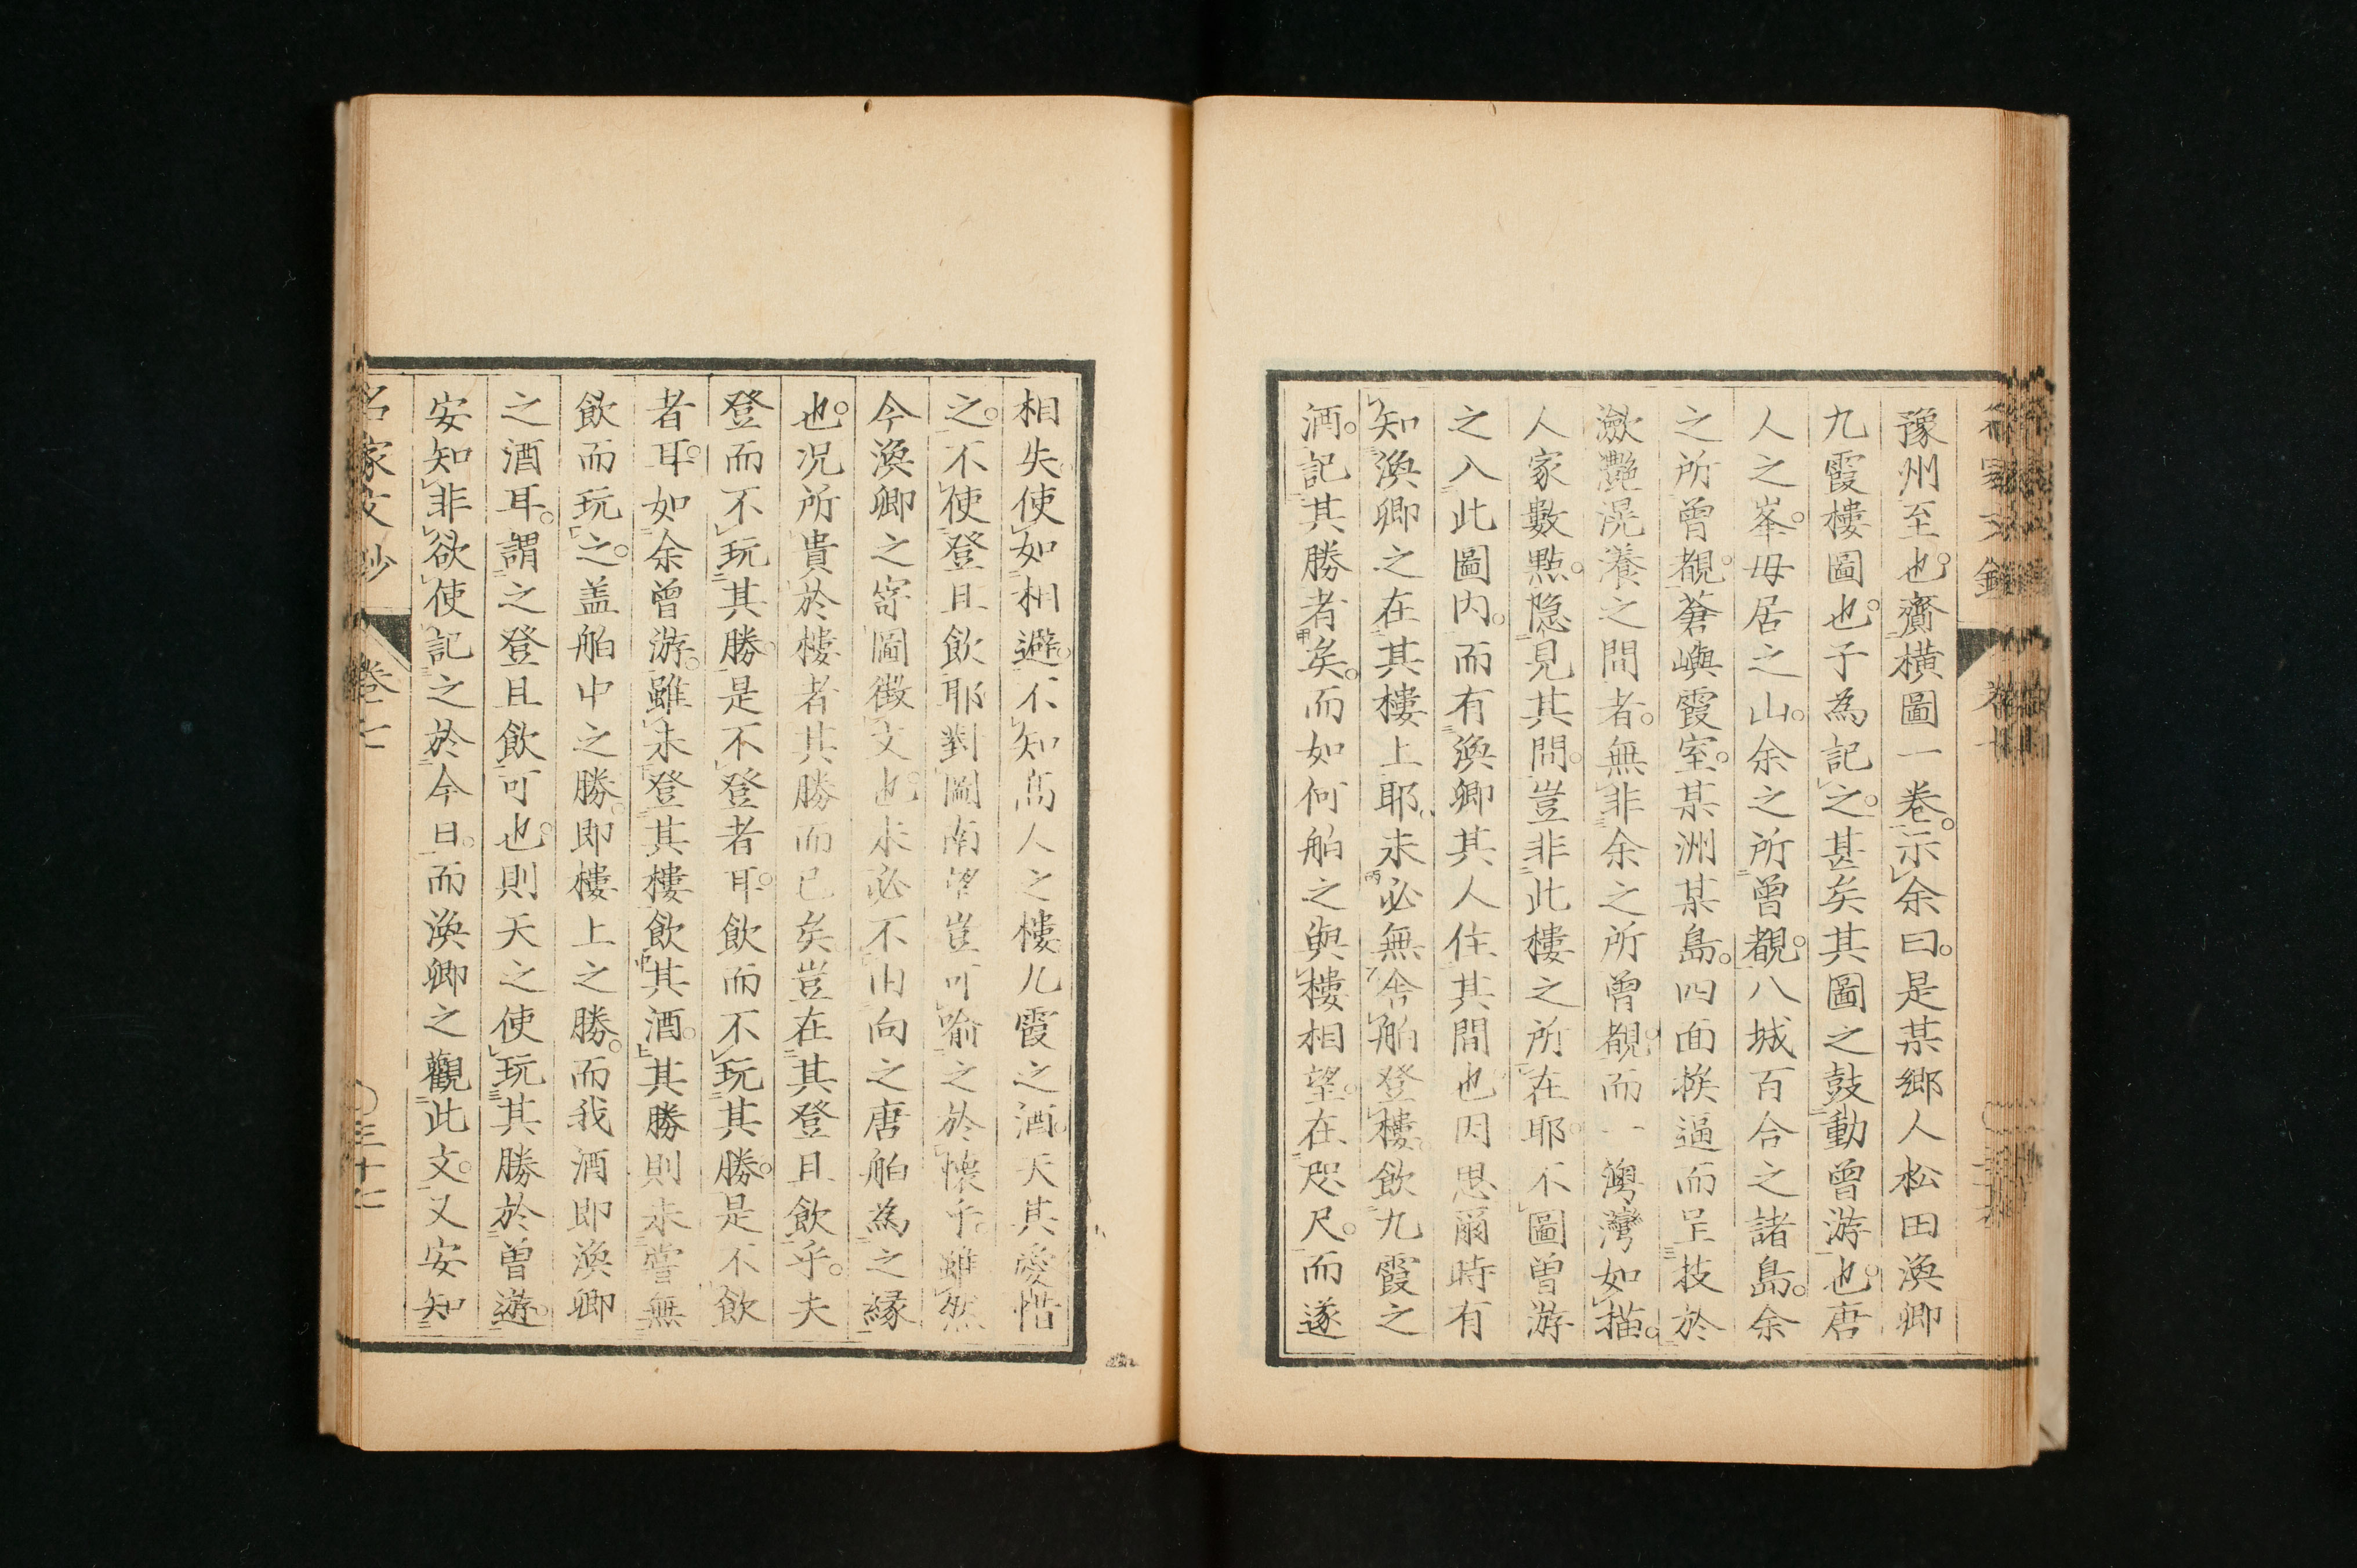 豫州至也。齎橫圖一卷。示余曰。是某鄉人松田渙卿
九霞樓圖也。子為記之。甚矣其圖之鼓動曾游也。唐
人之峯。毋居之山。余之所曾覩。八城百合之諸島。余
之所曾覩。蒼嶼霞室。某洲某島。四面挨逼而呈技於
瀲灎滉瀁之間者。無非余之所曾覩。而一灣如描。
人家數點。隐見其間。豈非此樓之所在耶。不圖曾游
之入此圖内。而有渙卿其人住其間也因思爾時有
知渙卿之在其樓上耶。未必無舎舶登樓。飲九霞之
酒。記其勝者矣。而如何舶之與樓相望。在咫尺。而遂
相失使如相避。不知高人之樓九霞之酒。天其愛惜
之。不使登且飲耶對圖南望豈可喻之於懷乎。雖然
今渙卿之寄圖徵文也。未必不由向之唐舶為之縁
也。况所貴於樓者其勝而已矣豈在其登且飲乎。夫
登而不玩其勝。是不登者耳。飲而不玩其勝。是不飲
者耳。如余曾游。雖未登其樓飲其酒。其勝則未嘗無
飲而玩之。盖舶中之勝。即樓上之勝。而我酒即渙卿
之酒耳。謂之登且飲可也。則天之使玩其勝於曽遊。
安知非欲使記之於今日。而渙卿之觀此文。又安知
名家文抄 卷七 三十七